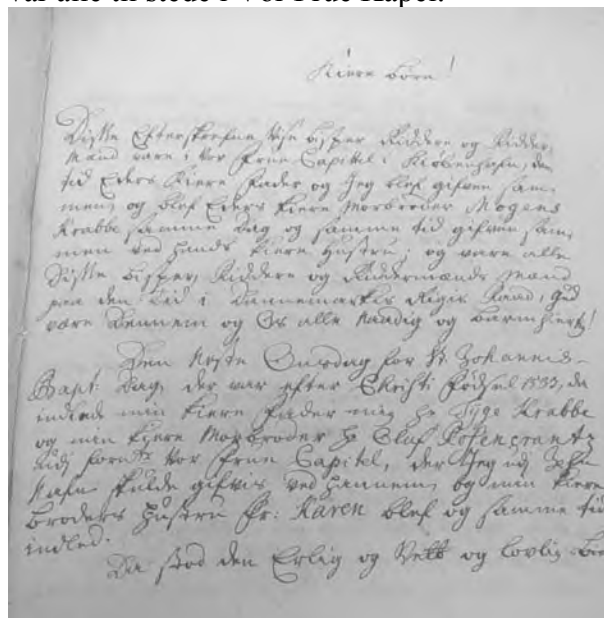 var alle til stede i Vor Frue Kapel.
Kiere Børn!
Disse Efterskrefne Vise bisper Riddere og Ridder,
Mænd vare i Vor Frue Capitel i Kiøbenhafn, den
tid Eders Kiere Fader og Jeg blef gifven sam¬
men, og blef Eders Kiere Morbroder Mogens
Krabbe samme Dag og samme tid gifven sam¬
men ved hands kiere Hustru; og vare alle
Disse bisper, Riddere og Riddermænds Mænd
paa den tid i Dannemarks Rigis Raad, Gud
være Dennem og Os alle Naadig og barmhiertig!
Den Neste Onsdag for St. Johannis-
Bapt: Dag, der var efter Christi Fødsel 1533, da
indleed min kiere Fader mig Hr Tyge Krabbe
og min kiere Morbroder Hr Oluf Rosencrantz
udj fornte Vor Frue Capitel, der Jeg udj
Nafn skulde gifvis ved hannem, og min kiere
broders Hustru Fr: Karen blef og samme tid
indled.
Da stod den Erlig og Velb og lovlig